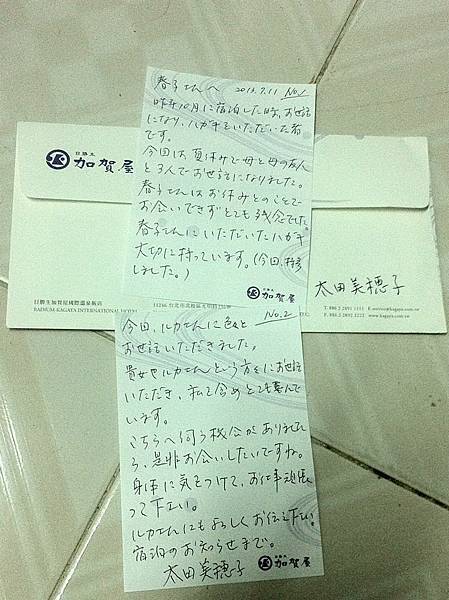 春子さんへ 2013.7.11 No.1
昨年10月に宿泊した時、お世話
になり、ハガキをいただいた者
です。
今回は夏休みで母と母の友人
と3人でお世話になりました。
春子さんはお休みとのことで
お会いできずとても残念でした。
春子さんにいただいたハガキ
大切に持っています。(今回、持参
しました。)
加賀屋
日勝生
加賀屋
太田美穂子
日勝生加賀屋國際溫泉飯店
RADIUM KAGAYA INTERNATIONAL HOTEL
11246 台北市北投區光明路236號
T. 886 2 2891 1111
F. 886 2 2891 2222
www.kagaya.com.tw
今回、ルカさんに色々と No.2
お世話いただきました。
貴女やルカさんという方々にお世話
いただき、私て含めとても喜んで
います。
こちらへ伺う機会がありました
ら、是非お会いしたいですね。
身体に気をつけて、お仕事頑張
って下さい。
ルカさんにもよろしくお伝え下さい。
宿泊のお知らせまで。
太田美穂子
加賀屋